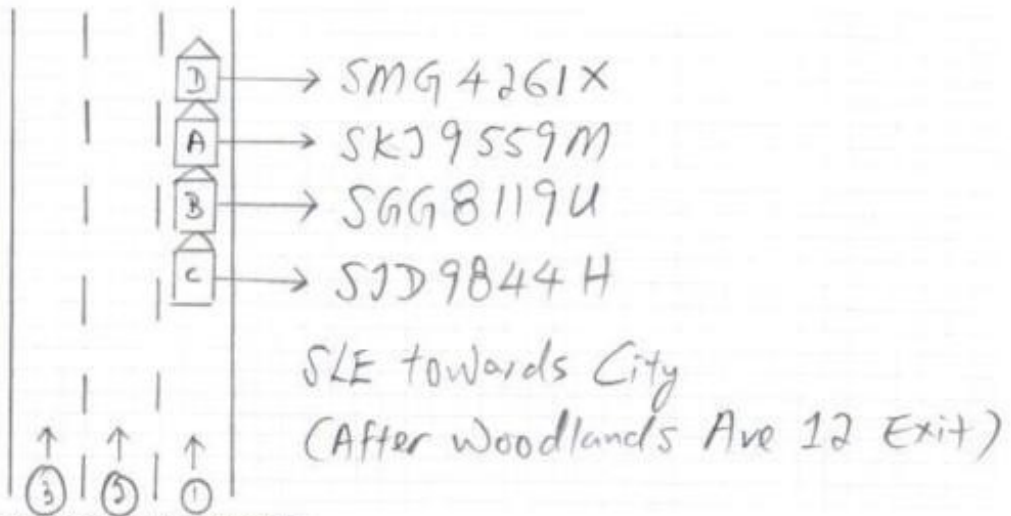 D → SMG4261X
A → SKJ9559M
B → SGG8119U
C → SJD9844H
SLE towards City
(After Woodlands Ave 12 Exit)
3 2 1